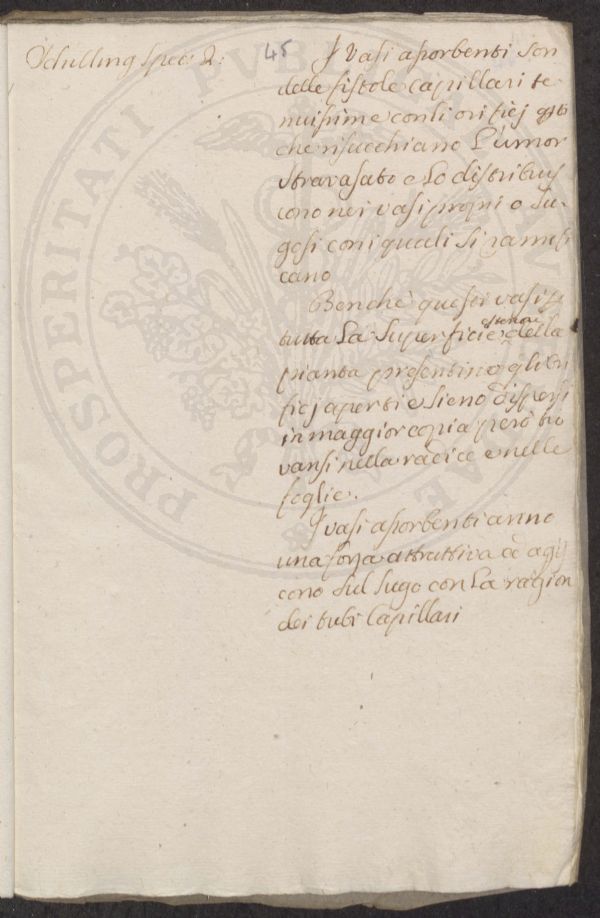 Schulling Spec: 2:
45
I Vasi assorbenti son
delle fistole capillari te
nuissime con li orificj
che risucchiano L'umor
stravasato e Lo distribuis
cono nei vasi propri o su-
gosi con i quali si ramifi
cano
Benchè questi vasi p.
tutta La Superficie esterna della
pianta presentino gli ori
ficj aperti e sieno dispersi
in maggior copia però tro
vansi nella radice e nelle
foglie.
I vasi assorbenti anno
una forza attrattiva ed agis
cono sul sugo con La ragion
dei tubi Capillari
PROSPERITATI PUBLICAE AUGENDAE